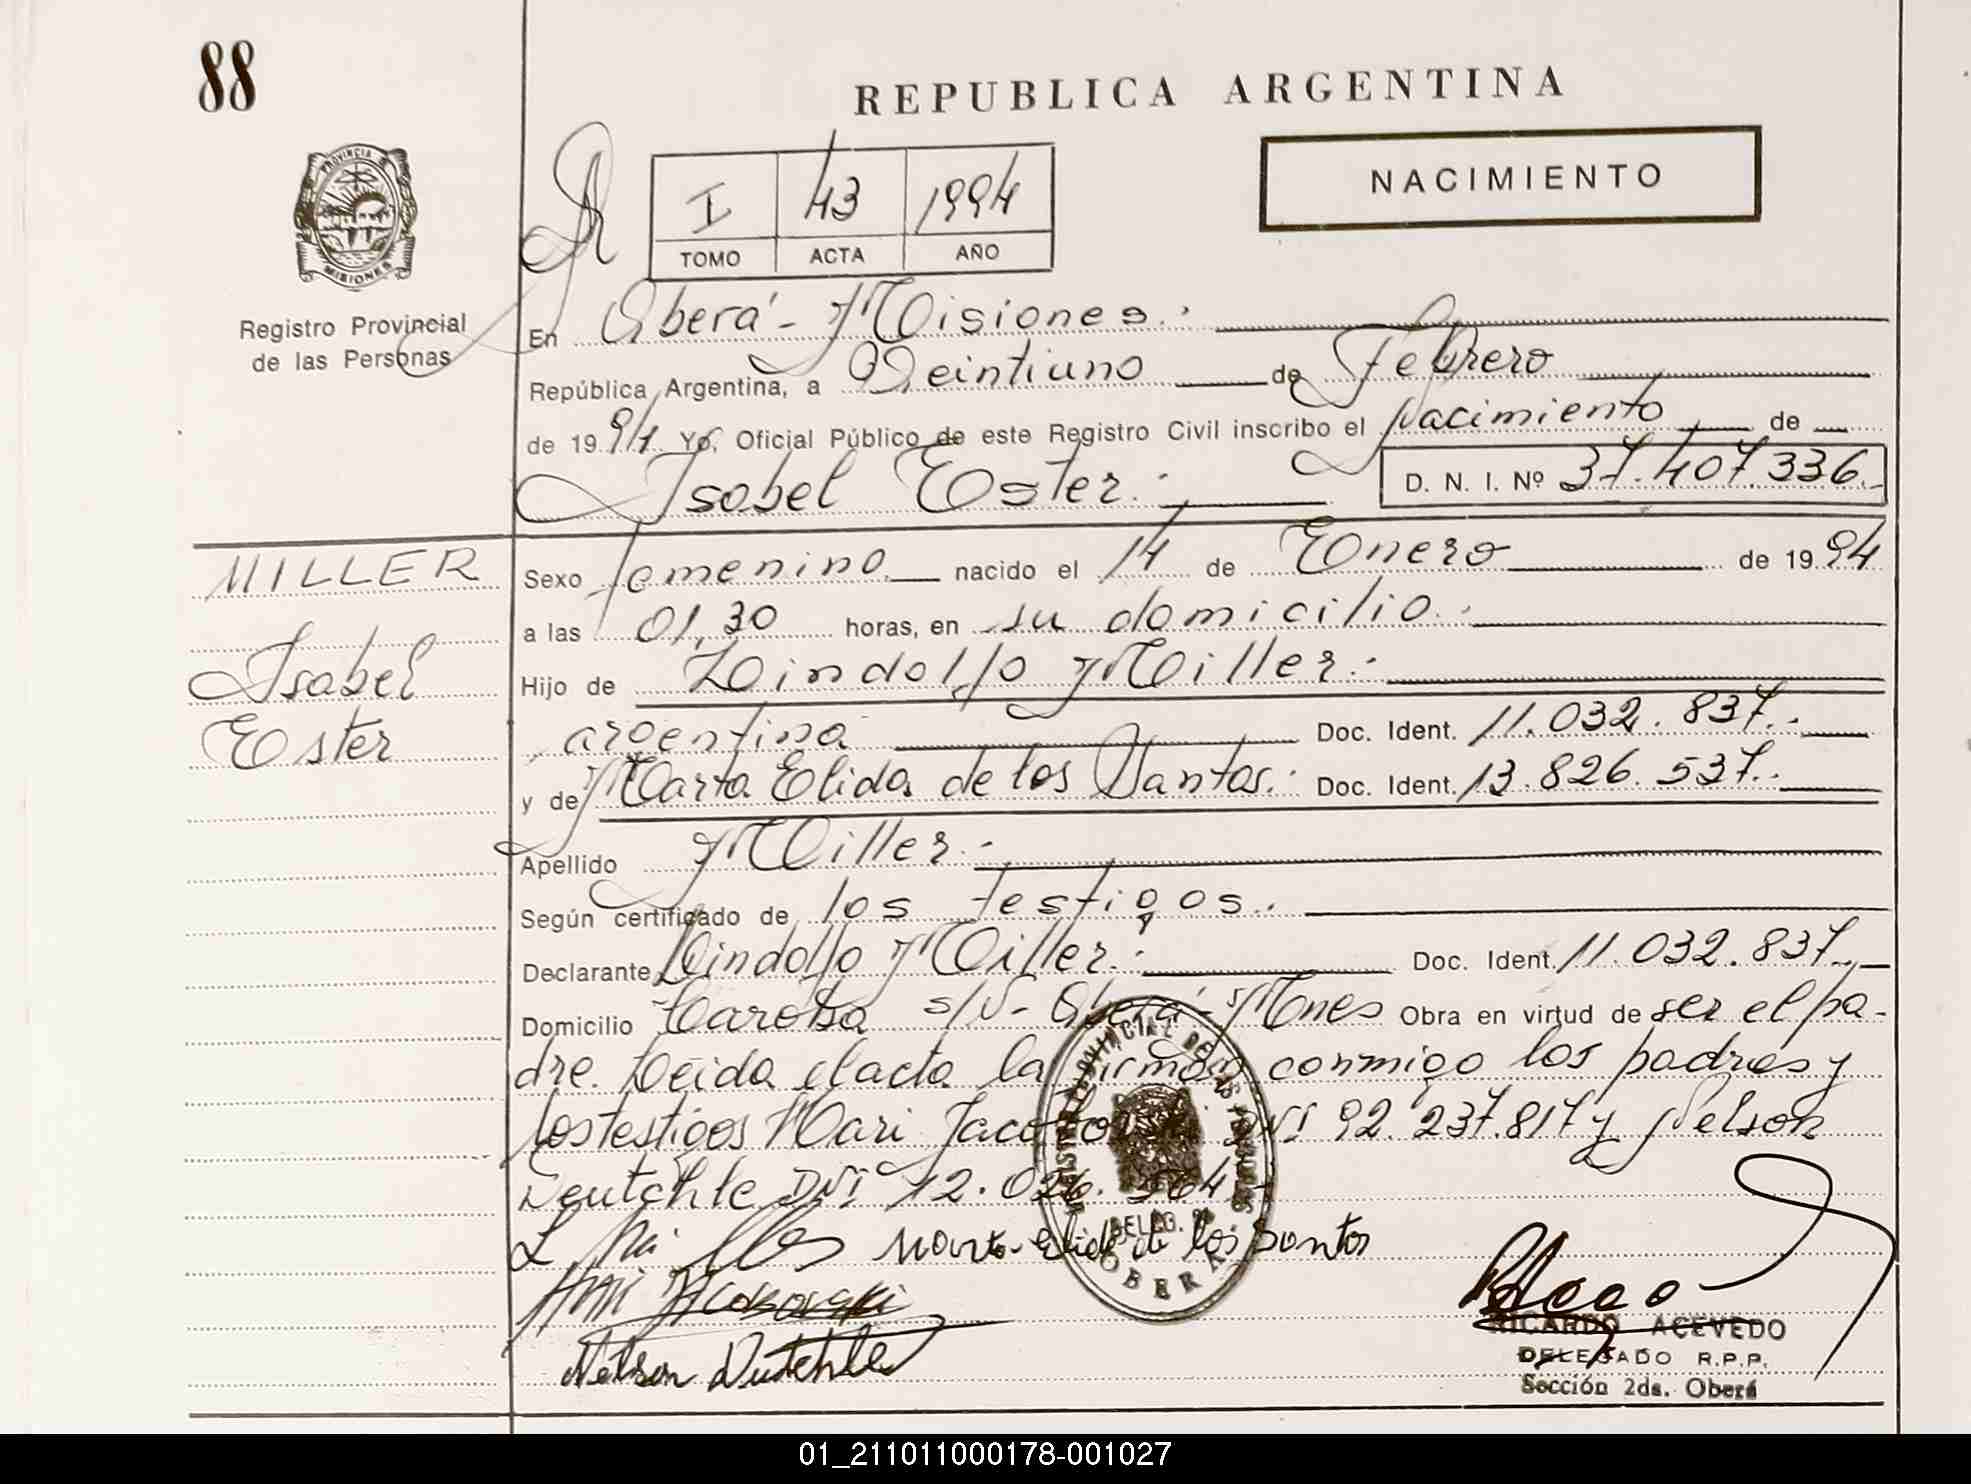 88
REPUBLICA ARGENTINA
NACIMIENTO
I 43 1994
TOMO ACTA AÑO
PROVINCIA DE MISIONES
Registro Provincial
de las Personas
En Oberá - Misiones.
República Argentina, a Veintiuno de Febrero
de 1994. Yo, Oficial Público de este Registro Civil inscribo el nacimiento de
Isabel Ester. D. N. I. Nº 37.407.336.-
MILLER
Isabel
Ester
Sexo femenino nacido el 14 de Enero de 1994
a las 01,30 horas, en su domicilio.
Hijo de Lindolfo Miller.
argentina Doc. Ident. 11.032.837.
y de Marta Elida de los Santos. Doc. Ident. 13.826.537.
Apellido Miller.
Según certificado de los testigos.
Declarante Lindolfo Miller. Doc. Ident. 11.032.837.
Domicilio s/N- Oberá - Mnes Obra en virtud de ser el pa-
dre. Leida el acta la firman conmigo los padres y
los testigos Mari DNI 92.237.817 y Nelson
DNI 12.026.564
Marta Elida de los Santos
Nelson
RICARDO ACEVEDO
DELEGADO R.P.P.
Sección 2da. Oberá
REGISTRO PROVINCIAL DE LAS PERSONAS
OBERA
01_211011000178-001027